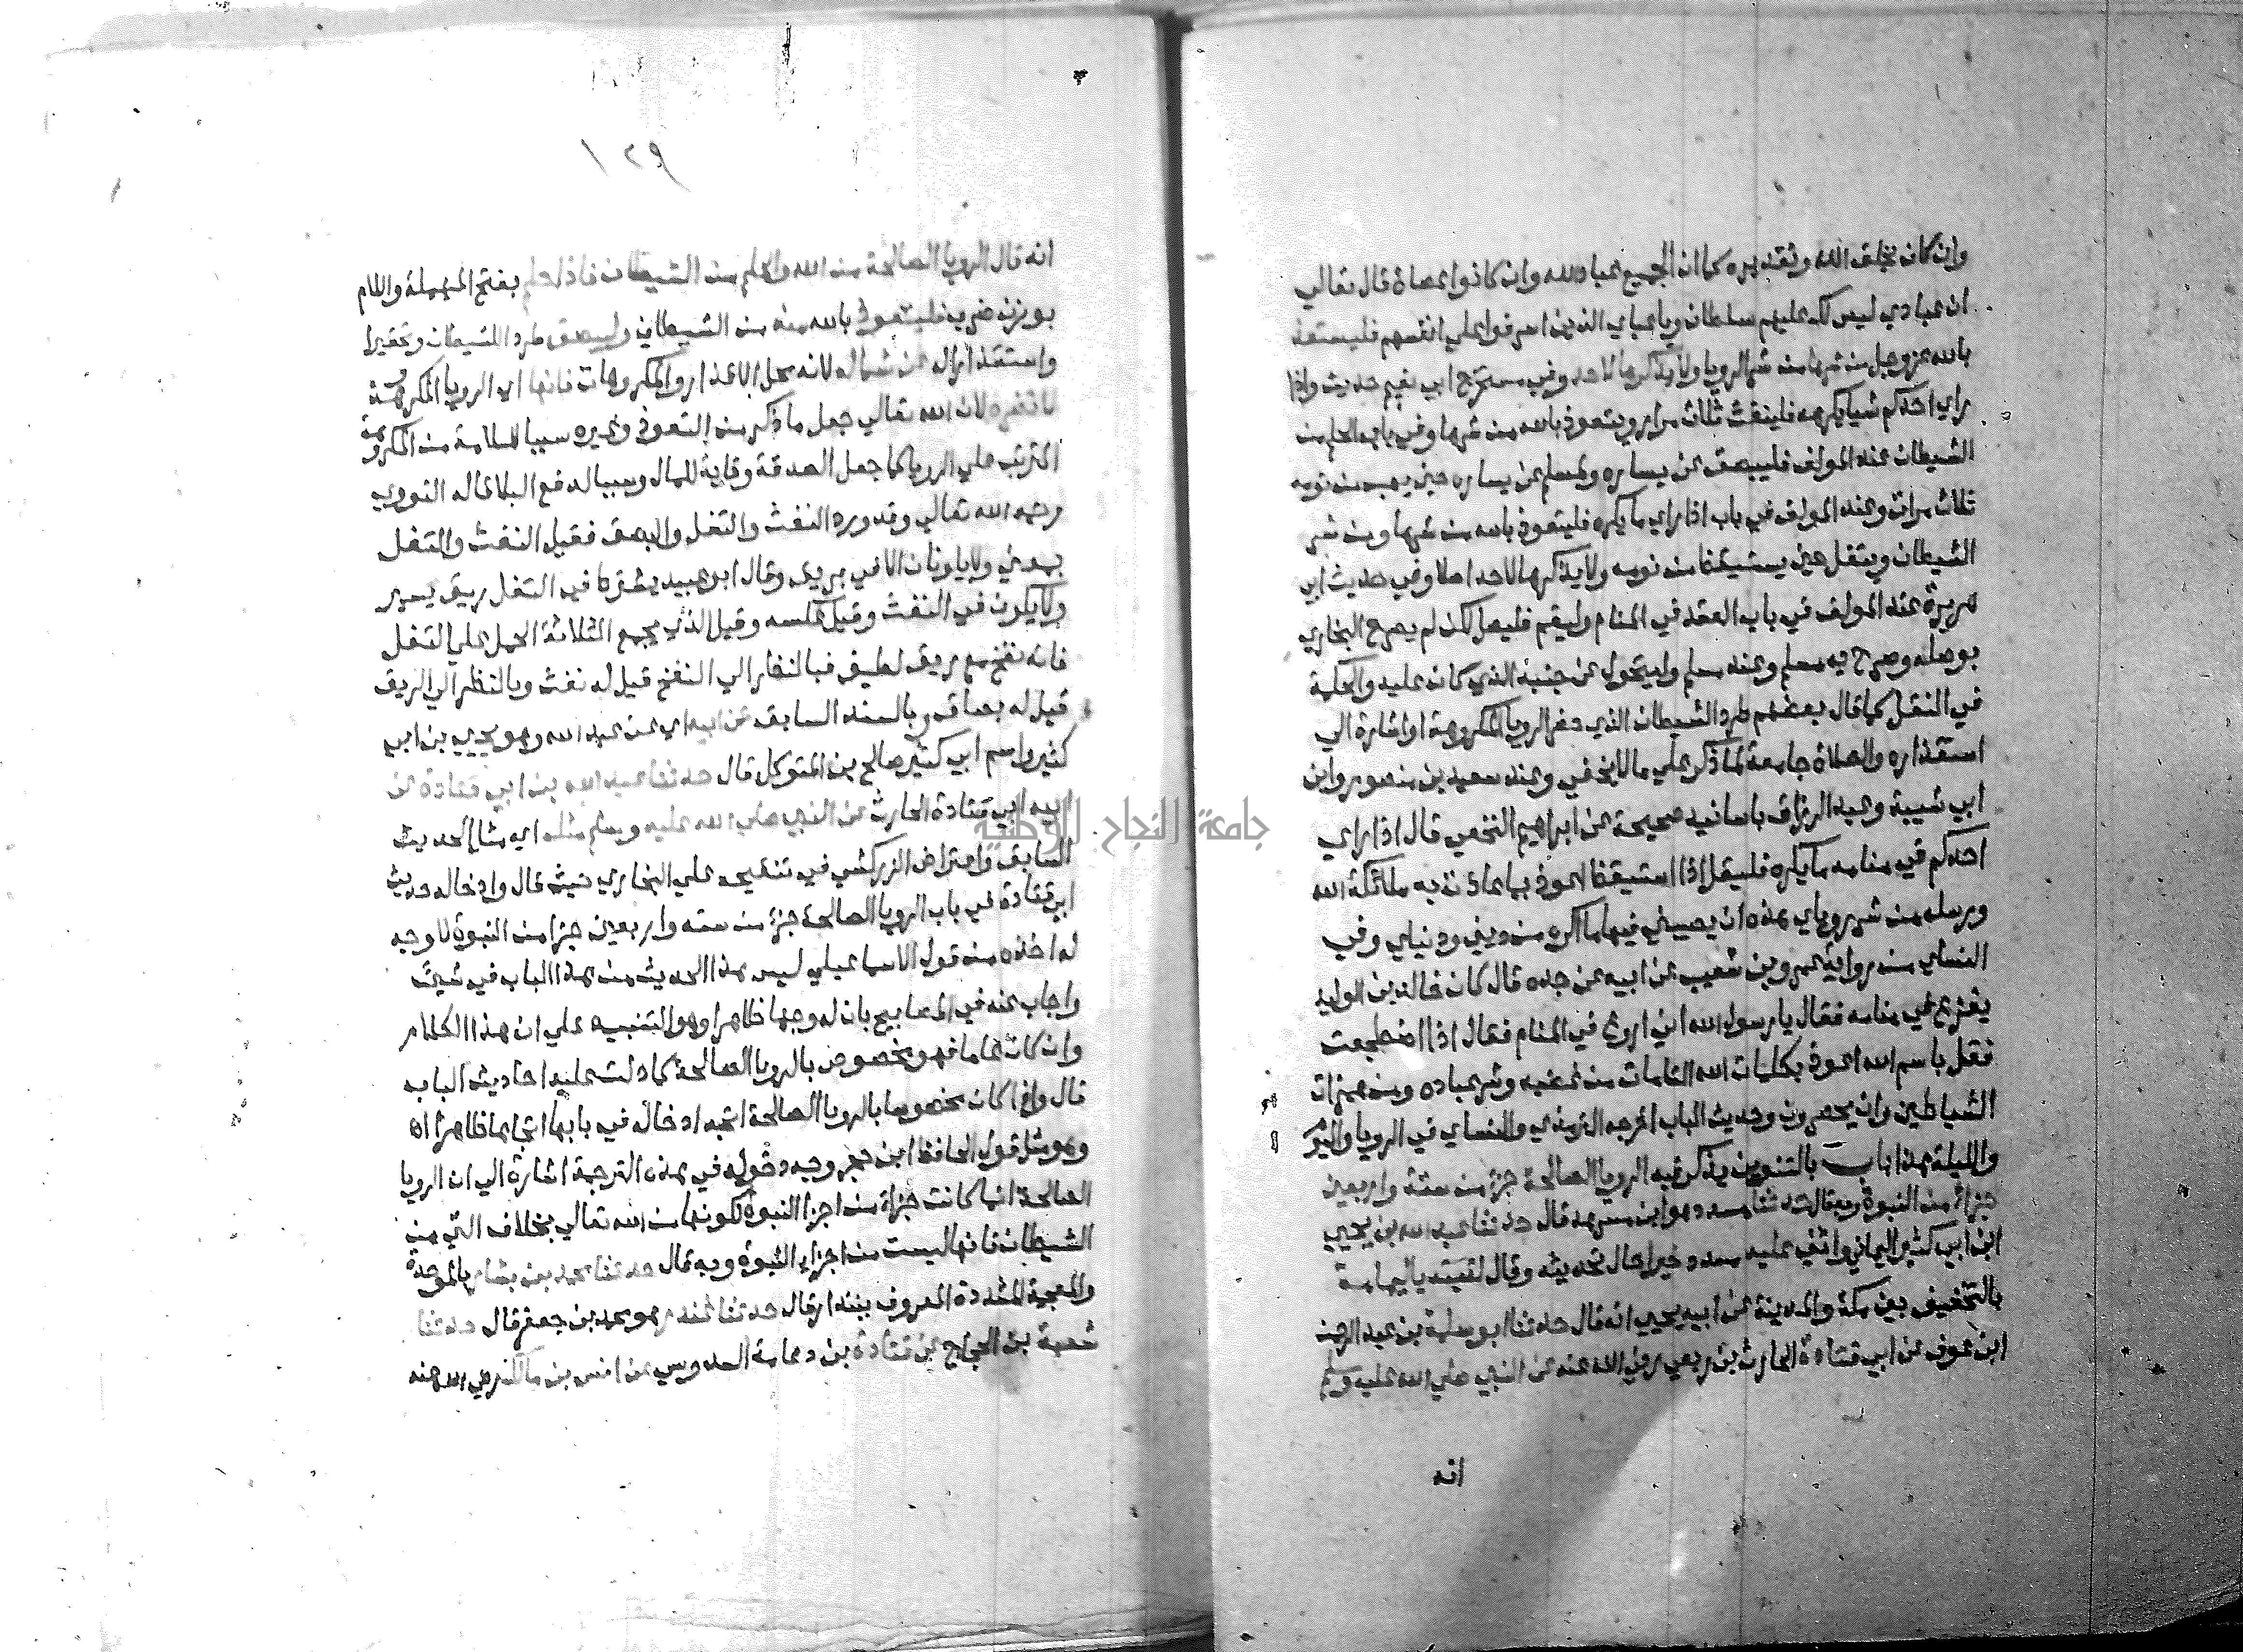 وان كان بخلق الله وتقديره كما ان الجميع عباد الله وان كانوا عصاة قال تعالي
ان عبادي ليس لك عليهم سلطان ويا عبادي الذين اسرفوا علي انفسهم فليستعذ
بالله عز وجل من شرها من شر الرويا ولا يذكرها لاحد وفي مستخرج ابي نعيم حديث واذا
راي احدكم شيا يكرهه فلينفث ثلاث مرار ويتعوذ بالله من شرها وفي باب الحلم من
الشيطان عند المولف فليبصق عن يساره ولمسلم عن يساره حين يهب من نومه
ثلاث مرات وعند المولف في باب اذا راي ما يكره فليتعوذ بالله من شرها ومن شر
الشيطان ويتفل حين يستيقظ من نومه ولا يذكرها لاحد اصلا وفي حديث ابي
هريرة عند المولف في باب القيد في المنام وليقم فليصل لكن لم يصرح البخاري
بوصله وصرح به مسلم وعند مسلم وليتحول عن جنبه الذي كان عليه والحكمة
في التفل كما قال بعضهم طرد الشيطان الذي حضر الرويا المكروهة او اشارة الي
استقذاره والصلاة جامعة لما ذكر علي ما لا يخفي وعند سعيد بن منصور وابن
ابي شيبة وعبد الرزاق باسانيد صحيحة عن ابراهيم النخعي قال اذا راي
احدكم في منامه ما يكره فليقل اذا استيقظ اعوذ بما عاذت به ملائكة الله
ورسله من شر روياي هذه ان يصيبني فيها ما اكره من ديني ودنياي وفي
النساي من رواية عمرو بن شعيب عن ابيه عن جده قال كان خالد بن الوليد
يفزع في منامه فقال يا رسول الله اني اروع في المنام فقال اذا اضطجعت
فقل باسم الله اعوذ بكلمات الله التامات من غضبه وشر عباده ومن همزات
الشياطين وان يحضرون وحديث الباب اخرجه الترمذي والنساي في الرويا واليوم
والليلة هذا باب بالتنوين يذكر فيه الرويا الصالحة جزء من ستة واربعين
جزا من النبوة وبه قال حدثنا مسدد هو ابن مسرهد قال حدثنا عبد الله بن يحيي
ابن ابي كثير اليماني واثني عليه مسدد خيرا حال تحديثه وقال لقيته باليمامة
بالتخفيف بين مكة والمدينة عن ابيه يحيي انه قال حدثنا ابو سلمة بن عبد الرحمن
ابن عوف عن ابي قتادة الحارث بن ربعي رضي الله عنه عن النبي صلي الله عليه وسلم
انه
١٢٩
انه قال الرويا الصالحة من الله والحلم من الشيطان فاذا حلم بفتح المهملة واللام
بوزن ضرب فليتعوذ بالله منه من الشيطان وليبصق طرد اللشيطان وتحقيرا
واستقذارا له عن شماله لانه محل الاقذار والمكروهات فانها اي الرويا المكروهة
لا تضره لان الله تعالي جعل ما ذكر من التعوذ وغيره سببا للسلامة من المكروه
المترتب علي الرويا كما جعل الصدقة وقاية للمال وسببا لدفع البلا قاله النووي
رحمه الله تعالي وقد ورد النفث والتفل والبصق فقيل النفث والتفل
بمعني ولا يكونان الا في بريق وقال ابو عبيد يشترط في التفل ريق يسير
ولا يكون في النفث وقيل عكسه وقيل الذي يجمع الثلاثة الحمل علي التفل
فانه نفخ مع ريق لطيف فبالنظر الي النفخ قيل له نفث وبالنظر الي الريق
قيل له بصاق وبالسند السابق عن ابيه اي عن عبد الله وهو يحيي بن ابي
كثير واسم ابي كثير صالح بن المتوكل قال حدثنا عبد الله بن ابي قتادة عن
ابيه ابي قتادة الحارث عن النبي صلي الله عليه وسلم مثله اي مثل الحديث
السابق واعتراض الزركشي في تنقيحه علي البخاري حيث قال وادخاله حديث
ابي قتادة في باب الرويا الصالحة جزء من ستة واربعين جزا من النبوة لا وجه
له اخذه من قول الاسماعيلي ليس هذا الحديث من هذا الباب في شيء
واجاب عنه في المصابيح بان له وجها ظاهرا وهو التنبيه علي ان هذا الكلام
وان كان عاما فهو مخصوص بالرويا الصالحة كما دلت عليه احاديث الباب
قال واذا كان مخصوصا بالرويا الصالحة اتجه ادخاله في بابها اتجاها ظاهرا اه
وهو مثل قول الحافظ ابن حجر وجه دخوله في هذه الترجمة اشارة الي ان الرويا
الصالحة انما كانت جزاء من اجزا النبوة لكونها من الله تعالي بخلاف التي من
الشيطان فانها ليست من اجزاء النبوة وبه قال حدثنا محمد بن بشار بالموحدة
والمعجمة المشددة المعروف ببندار قال حدثنا غندر هو محمد بن جعفر قال حدثنا
شعبة بن الحجاج عن قتادة بن دعامة السدوسي عن انس بن مالك رضي الله عنه
جامعة النجاح الوطنية